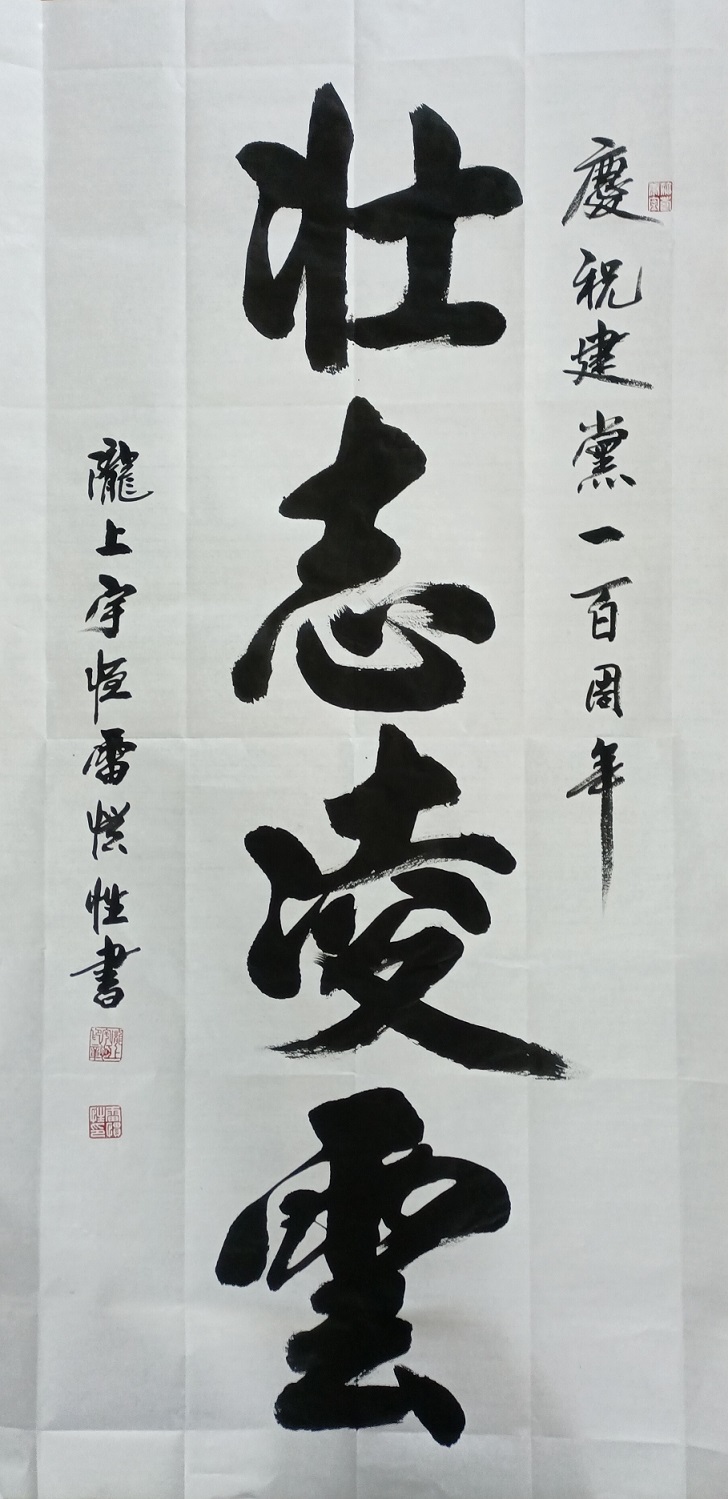 慶祝建黨一百周年
壯志凌雲
隴上宇恒雷慎性書